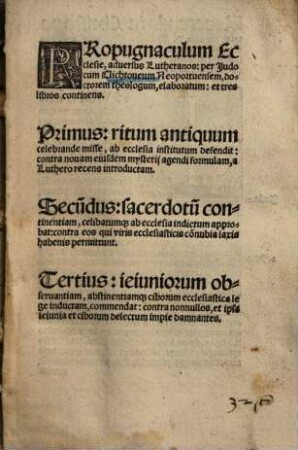 PRopugnaculum Ec
clesie, aduersus Lutheranos: per Judo
cum Clichtoueum Neoportuensem, do-
ctorem theologum, elaboratum: et tres
libros continens.
Primus: ritum antiquum
celebrande misse, ab ecclesia institutum defendit:
contra nouam eiusdem mysterij agendi formulam, a
Luthero recens introductam.
Secūdus: sacerdotū con-
tinentiam, celibatumqꝫ ab ecclesia indictum appro-
bat: contra eos qui viris ecclesiasticis cōnubia laxis
habenis permittunt.
Tertius: ieiuniorum ob-
seruantiam, abstinentiamqꝫ ciborum ecclesiastica le
ge inductam, commendat: contra nonnullos, et ipsa
ieiunia et ciborum delectum impie damnantes.